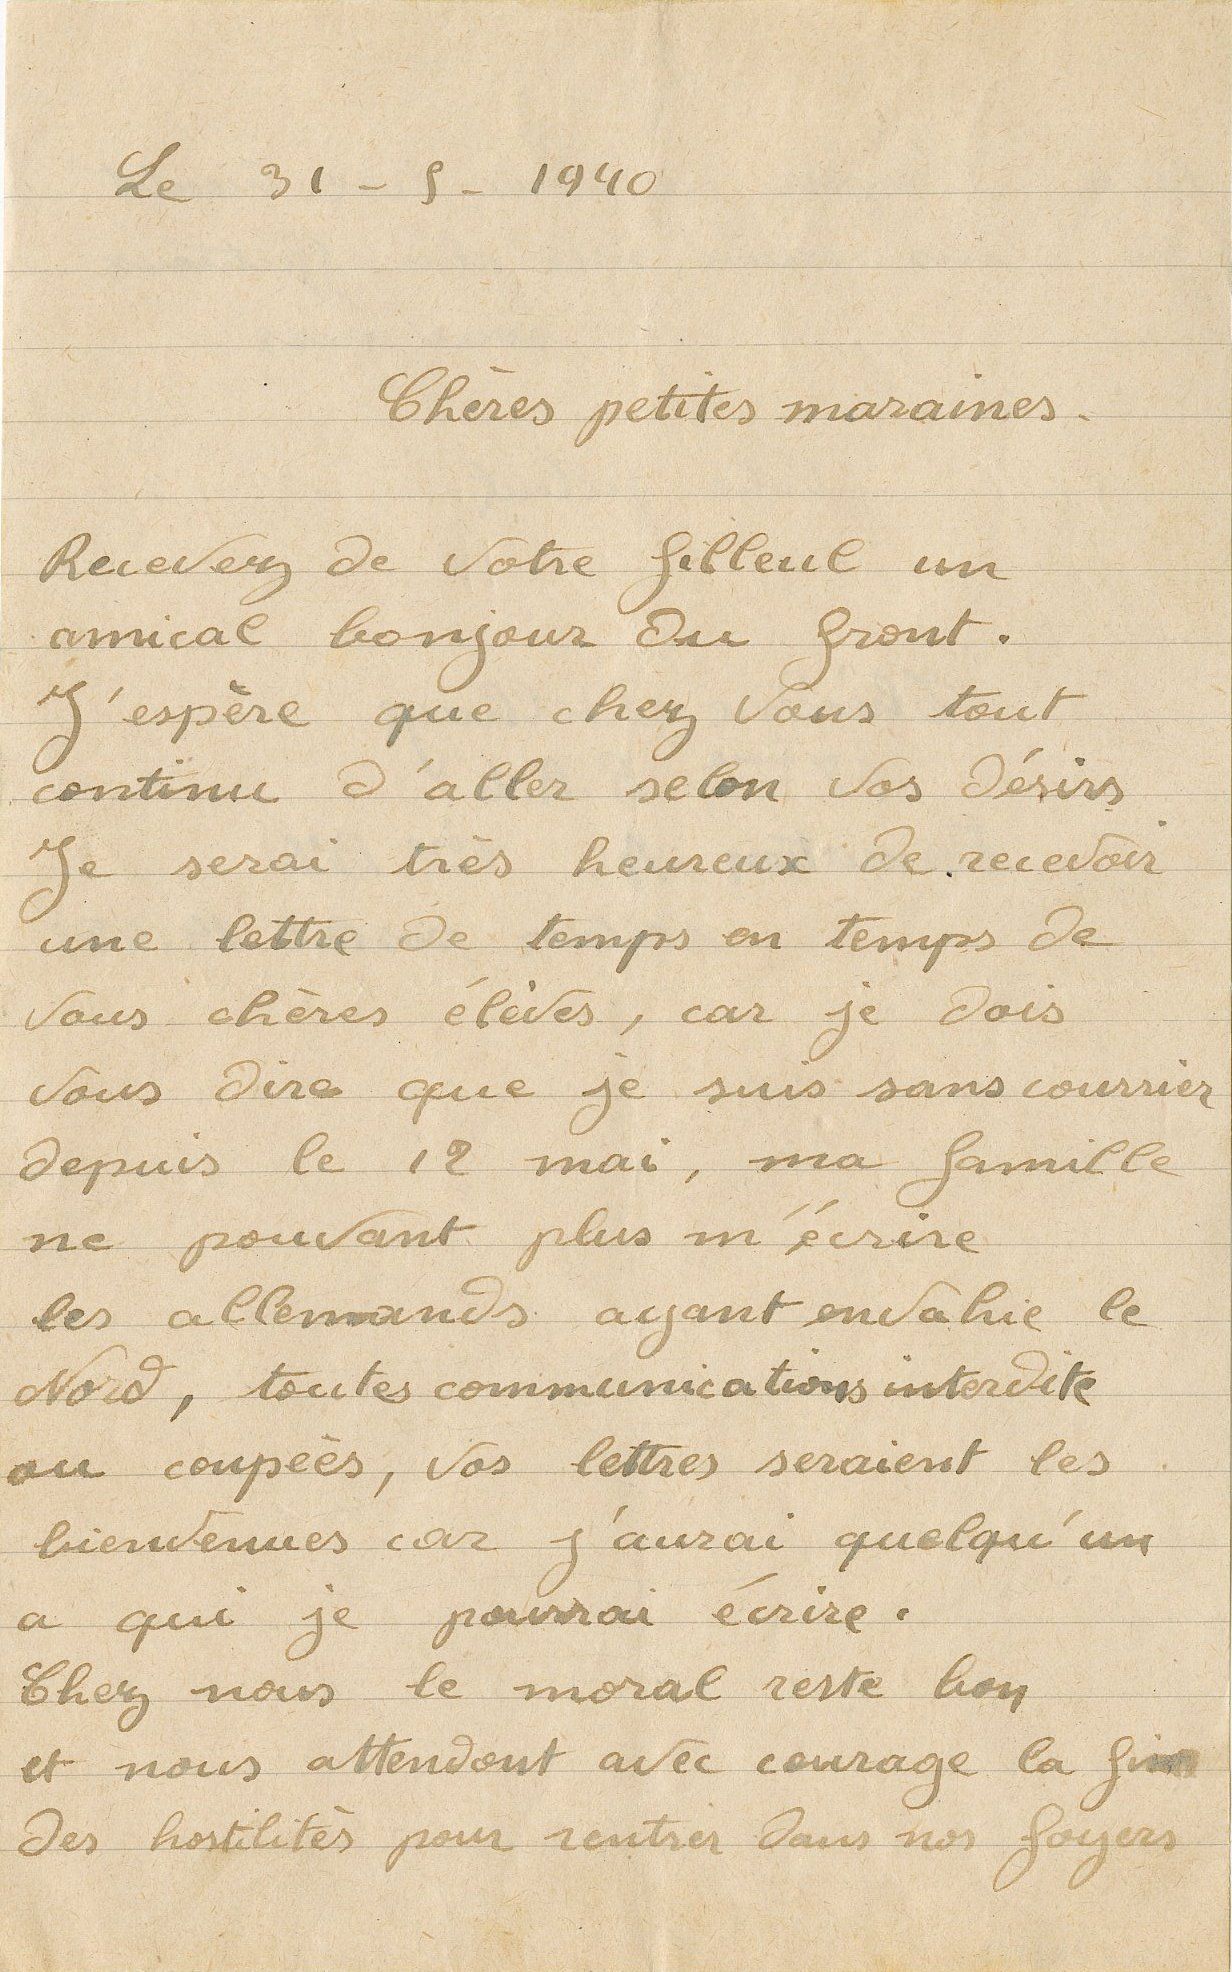 Le 31 - 5 - 1940
Chères petites maraines.
Recevez de votre filleul un
amical bonjour du front.
J'espère que chez vous tout
continu d'aller selon vos désirs
Je serai très heureux de recevoir
une lettre de temps en temps de
vous chères élèves, car je dois
vous dire que je suis sans courrier
depuis le 12 mai, ma famille
ne pouvant plus m'écrire
les allemands ayant envahie le
Nord, toutes communications interdite
ou coupéès, vos lettres seraient les
bienvenues car j'aurai quelqu'un
a qui je pourrai écrire.
Chez nous le moral reste bon
et nous attendont avec courage la fin
des hostilitès pour rentrer dans nos foyers